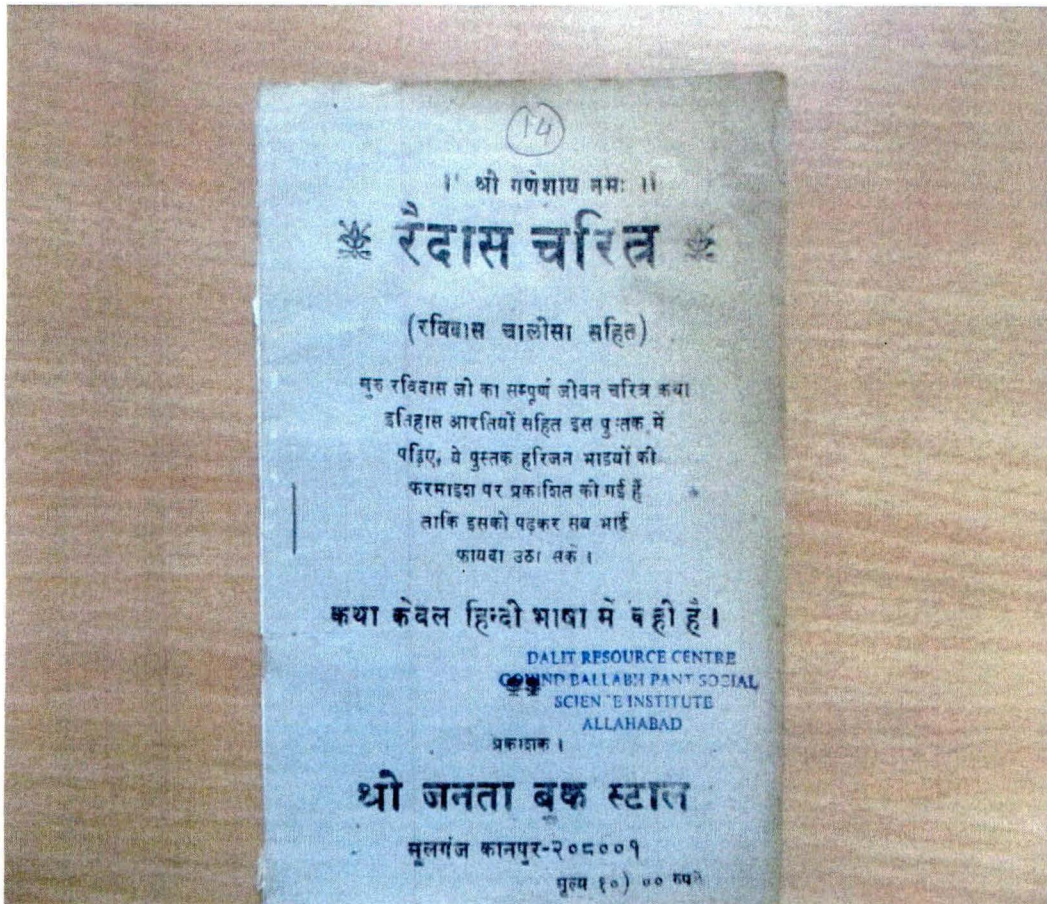 14
।। श्री गणेशाय नमः ।।
रैदास चरित्र
(रविदास चालीसा सहित)
गुरु रविदास जी का सम्पूर्ण जीवन चरित्र कथा
इतिहास आरतियों सहित इस पुस्तक में
पढ़िए, ये पुस्तक हरिजन भाइयों की
फरमाइश पर प्रकाशित की गई हैं
ताकि इसको पढ़कर सब भाई
फायदा उठा सकें ।
कथा केवल हिन्दी भाषा में कही है ।
DALIT RESOURCE CENTRE
GOVIND BALLABH PANT SOCIAL
SCIENCE INSTITUTE
ALLAHABAD
प्रकाशक ।
श्री जनता बुक स्टाल
मूलगंज कानपुर-२०८००१
मूल्य १०) ०० रुपये